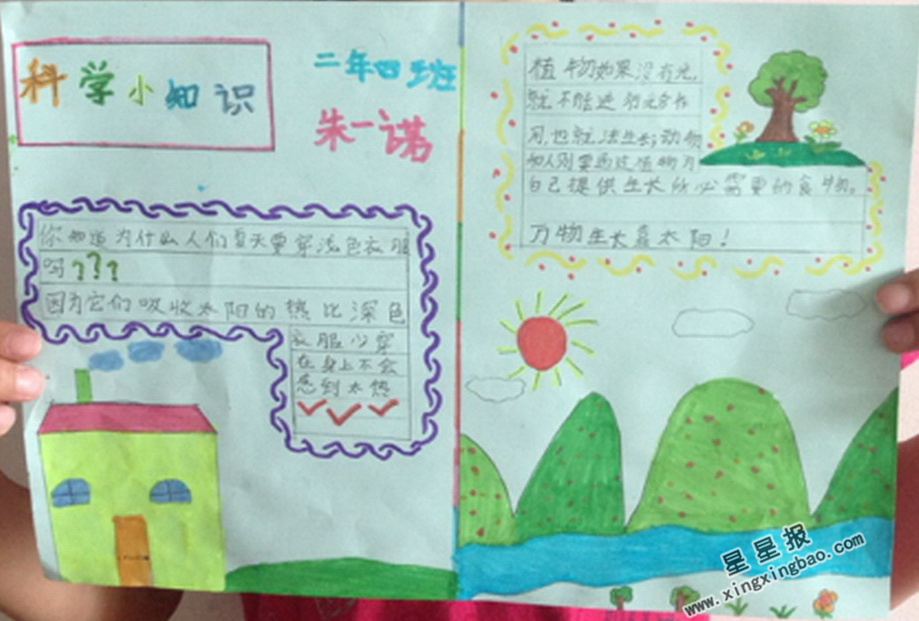 科学小知识
二年四班
朱一诺
你知道为什么人们夏天要穿浅色衣服
吗???
因为它们吸收太阳的热比深色
衣服少穿
在身上不会
感到太热
植物如果没有光,
就不能进行光合作
用,也就法生长;动物
和人则要通过植物为
自己提供生长所必需要的食物。
万物生长靠太阳!
星星报
www.xingxingbao.com